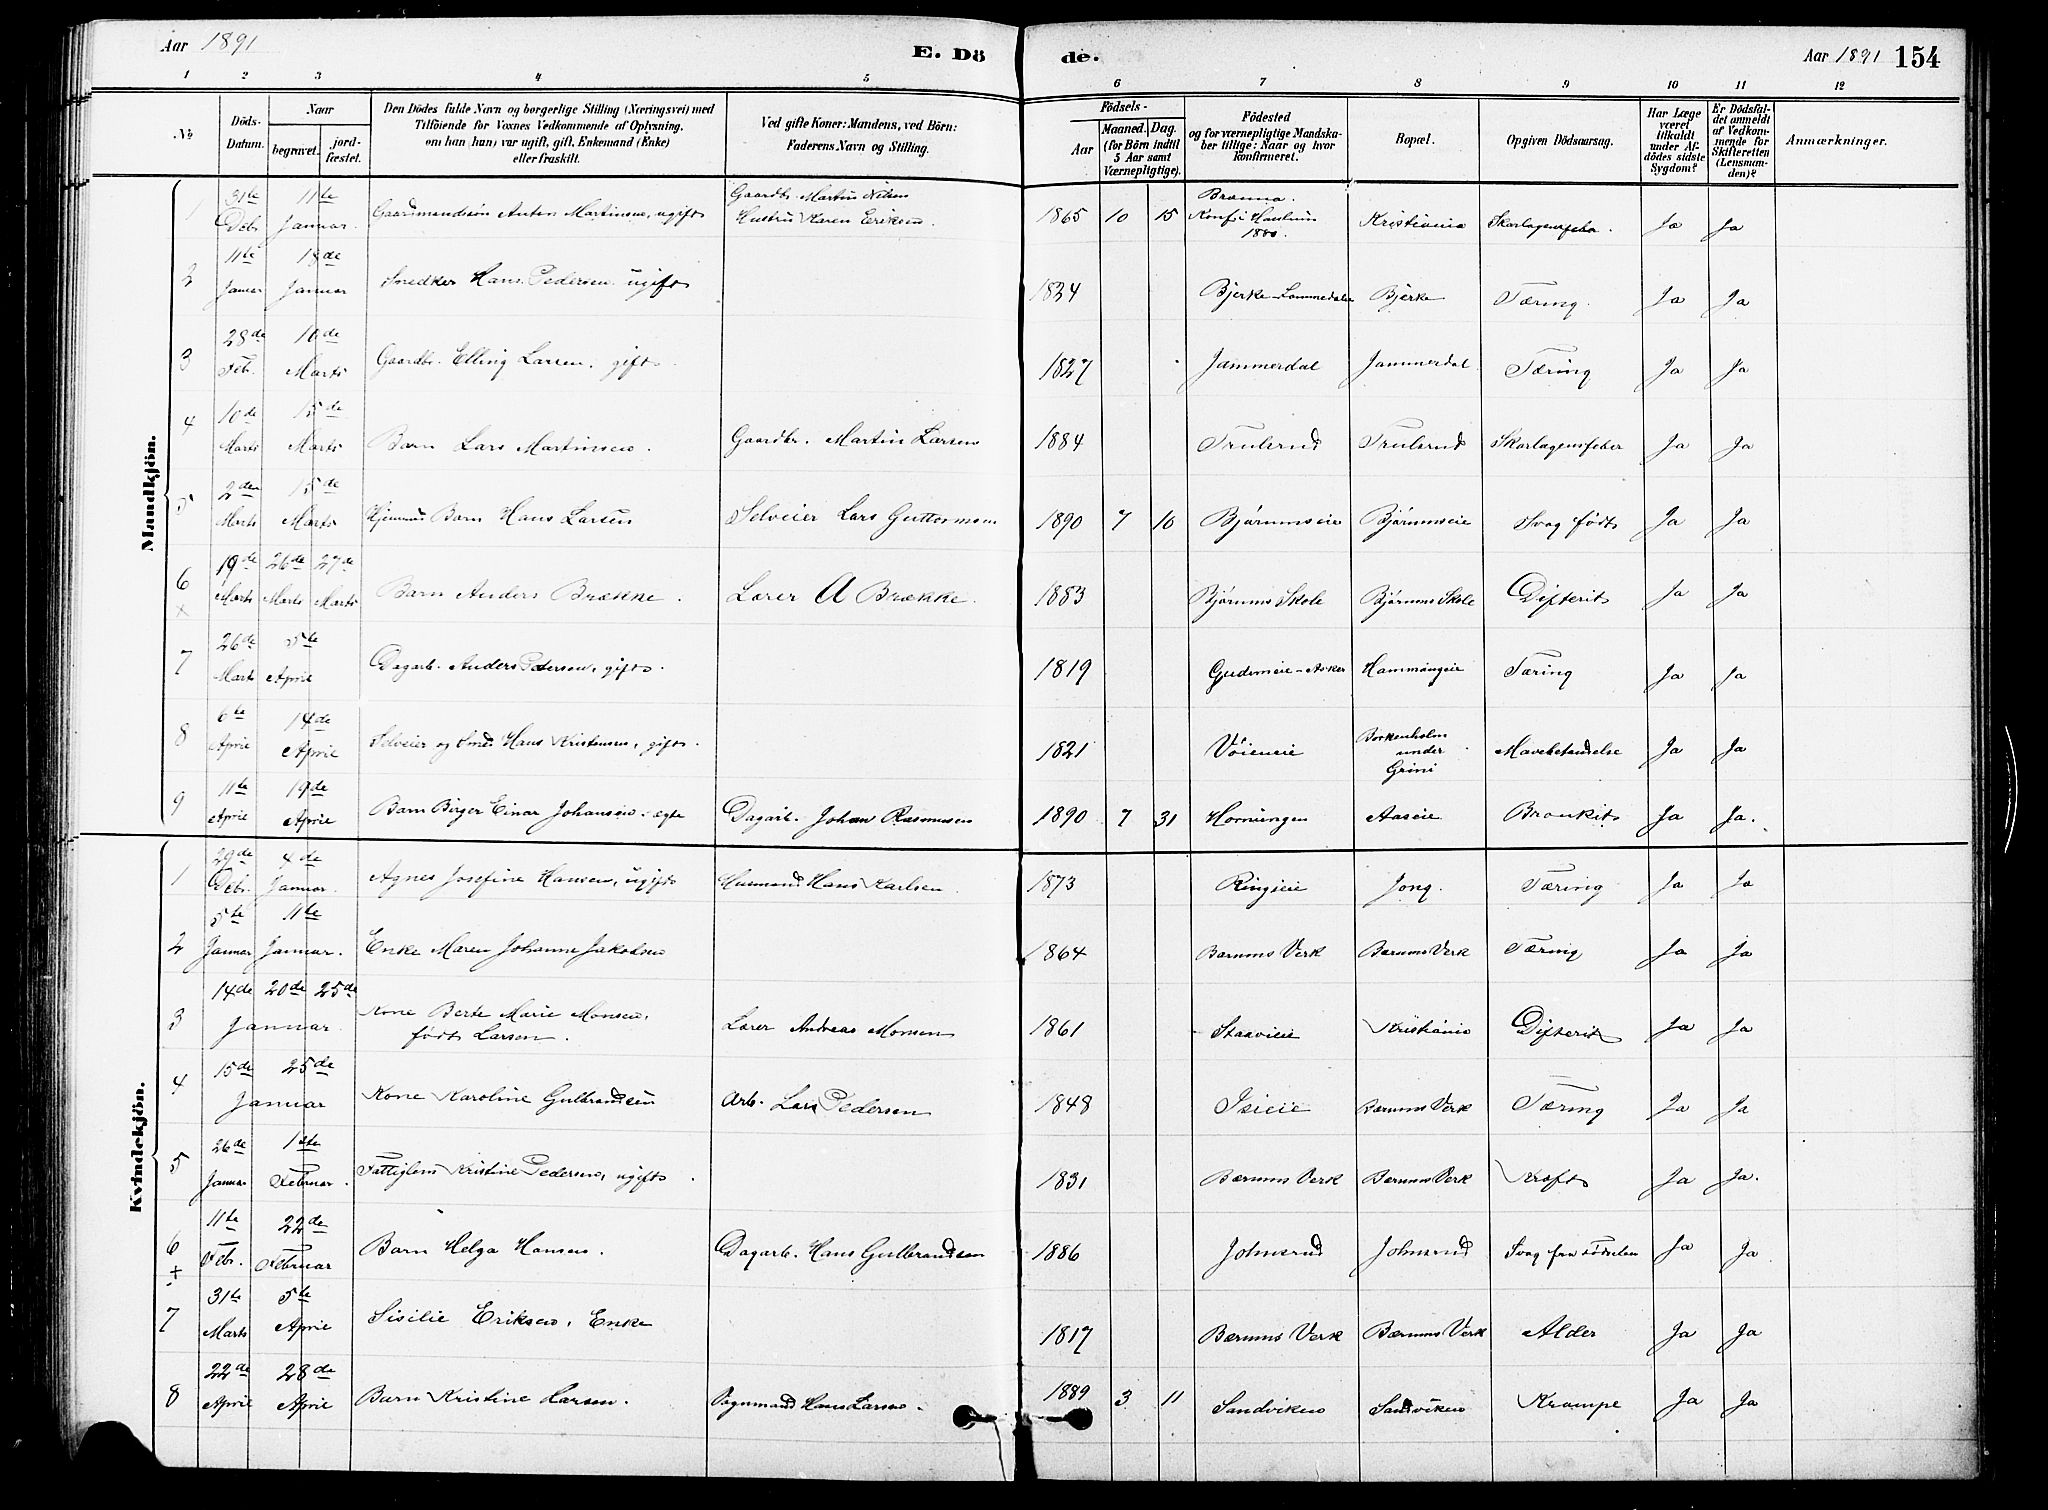 Aar 1891
E. Dö
de.
Aar 1891 154
1 2 3 4 5 6 7 8 9 10 11 12
No
Döds-Datum.
Naar
begravet. jord-fæstet.
Den Dödes fulde Navn og borgerlige Stilling (Næringsvei) med
Tilföiende for Voxnes Vedkommende af Oplysning,
om han (hun) var ugift, gift, Enkemand (Enke)
eller fraskilt.
Ved gifte Koner: Mandens, ved Börn:
Faderens Navn og Stilling.
Födsels-
Aar
Maaned. Dag.
(for Börn indtil
5 Aar samt
Værnepligtige).
Födested
og for værnepligtige Mandska-
ber tillige: Naar og hvor
konfirmeret.
Bopæl.
Opgiven Dödsaarsag.
Har Læge
været
tilkaldt
under Af-
dödes sidste
Sygdom?
Er Dödsfal-
det anmeldt
af Vedkom-
mende for
Skifteretten
(Lensman-
den)?
Anmærkninger.
Mandkjön.
1 31te Debr. 11te Januar. Gaardmandssön Anton Martinsen, ugift Gaardbr. Martin Nilsen Hustru Karen Eriksen. 1865 10 15 Brenna. Konf. i Haslum 1880. Kristiania Skarlagensfeber. Ja Ja
2 11te Januar 18de Januar Snedker Hans Pedersen ugift 1824 Bjerke-Lommedalen Bjerke Tæring. Ja Ja
3 28de Febr. 10de Marts Gaardbr. Elling Larsen, gift. 1827 Jammerdal Jammerdal Tæring Ja Ja
4 10de Marts 15de Marts Barn Lars Martinsen. Gaardbr. Martin Larsen 1884 Trulsrud Trulsrud Skarlagensfeber Ja Ja
5 2den Marts 15de Marts Hjemmed. Barn Hans Larsen Selveier Lars Guttormsen 1890 7 10 Bjørumseie Bjørumseie Svag født Ja Ja
6 + 19de Marts 26de Marts 27de Marts Barn Anders Brække. Lærer A Brække. 1883 Bjørums Skole Bjørums Skole Difterit Ja Ja
7 26de Marts 5te April Dagarb. Anders Pedersen, gift. 1819 Gudimeie-Asker Hammangeie Tæring Ja Ja
8 6te April 14de April Selveier og Smed Hans Kristensen, gift. 1821 Vöieneie Borkenholm under Grini Mavebetændelse Ja Ja
9 11te April 19de April Barn Birger Einar Johansen. ægte Dagarb. Johan Rasmussen 1890 7 31 Horningen Aaseie Bronkit Ja Ja.
Kvindekjön.
1 29de Debr. 4de Januar. Agnes Josefine Hansen, ugift Husmand Hans Karlsen. 1873 Ringieie Jong. Tæring Ja Ja
2 5te Januar 11te Januar. Enke Maren Johanne Jakobsen 1864 Bærums Verk Bærums Verk Tæring Ja Ja
3 14de 20de 25de Januar Kone Berte Marie Monsen, født Larsen. Lærer Andreas Monsen 1861 Staavieie Kristiania Difterit Ja Ja
4 15de 25de Januar Kone Karoline Gulbrandsen Arb. Lars Pedersen 1848 Isieie Bærums Verk Tæring Ja Ja
5 26de Januar 1ste Februar. Fattiglem Kristine Pedersen, ugift. 1831 Bærums Verk Bærums Verk Kræft Ja Ja.
6 + 11te Febr. 22de Februar Barn Helga Hansen. Dagarb. Hans Gulbrandsen 1886 Johnsrud Johnsrud Svag fra Fødselen Ja Ja
7 31te Marts 5te April Sisilie Eriksen, Enke 1817 Bærums Verk Bærums Verk Alder Ja Ja
8 22de April 28de April Barn Kristine Larsen. Vognmand Hans Larsen. 1889 3 11 Sandviken Sandviken Krampe Ja Ja